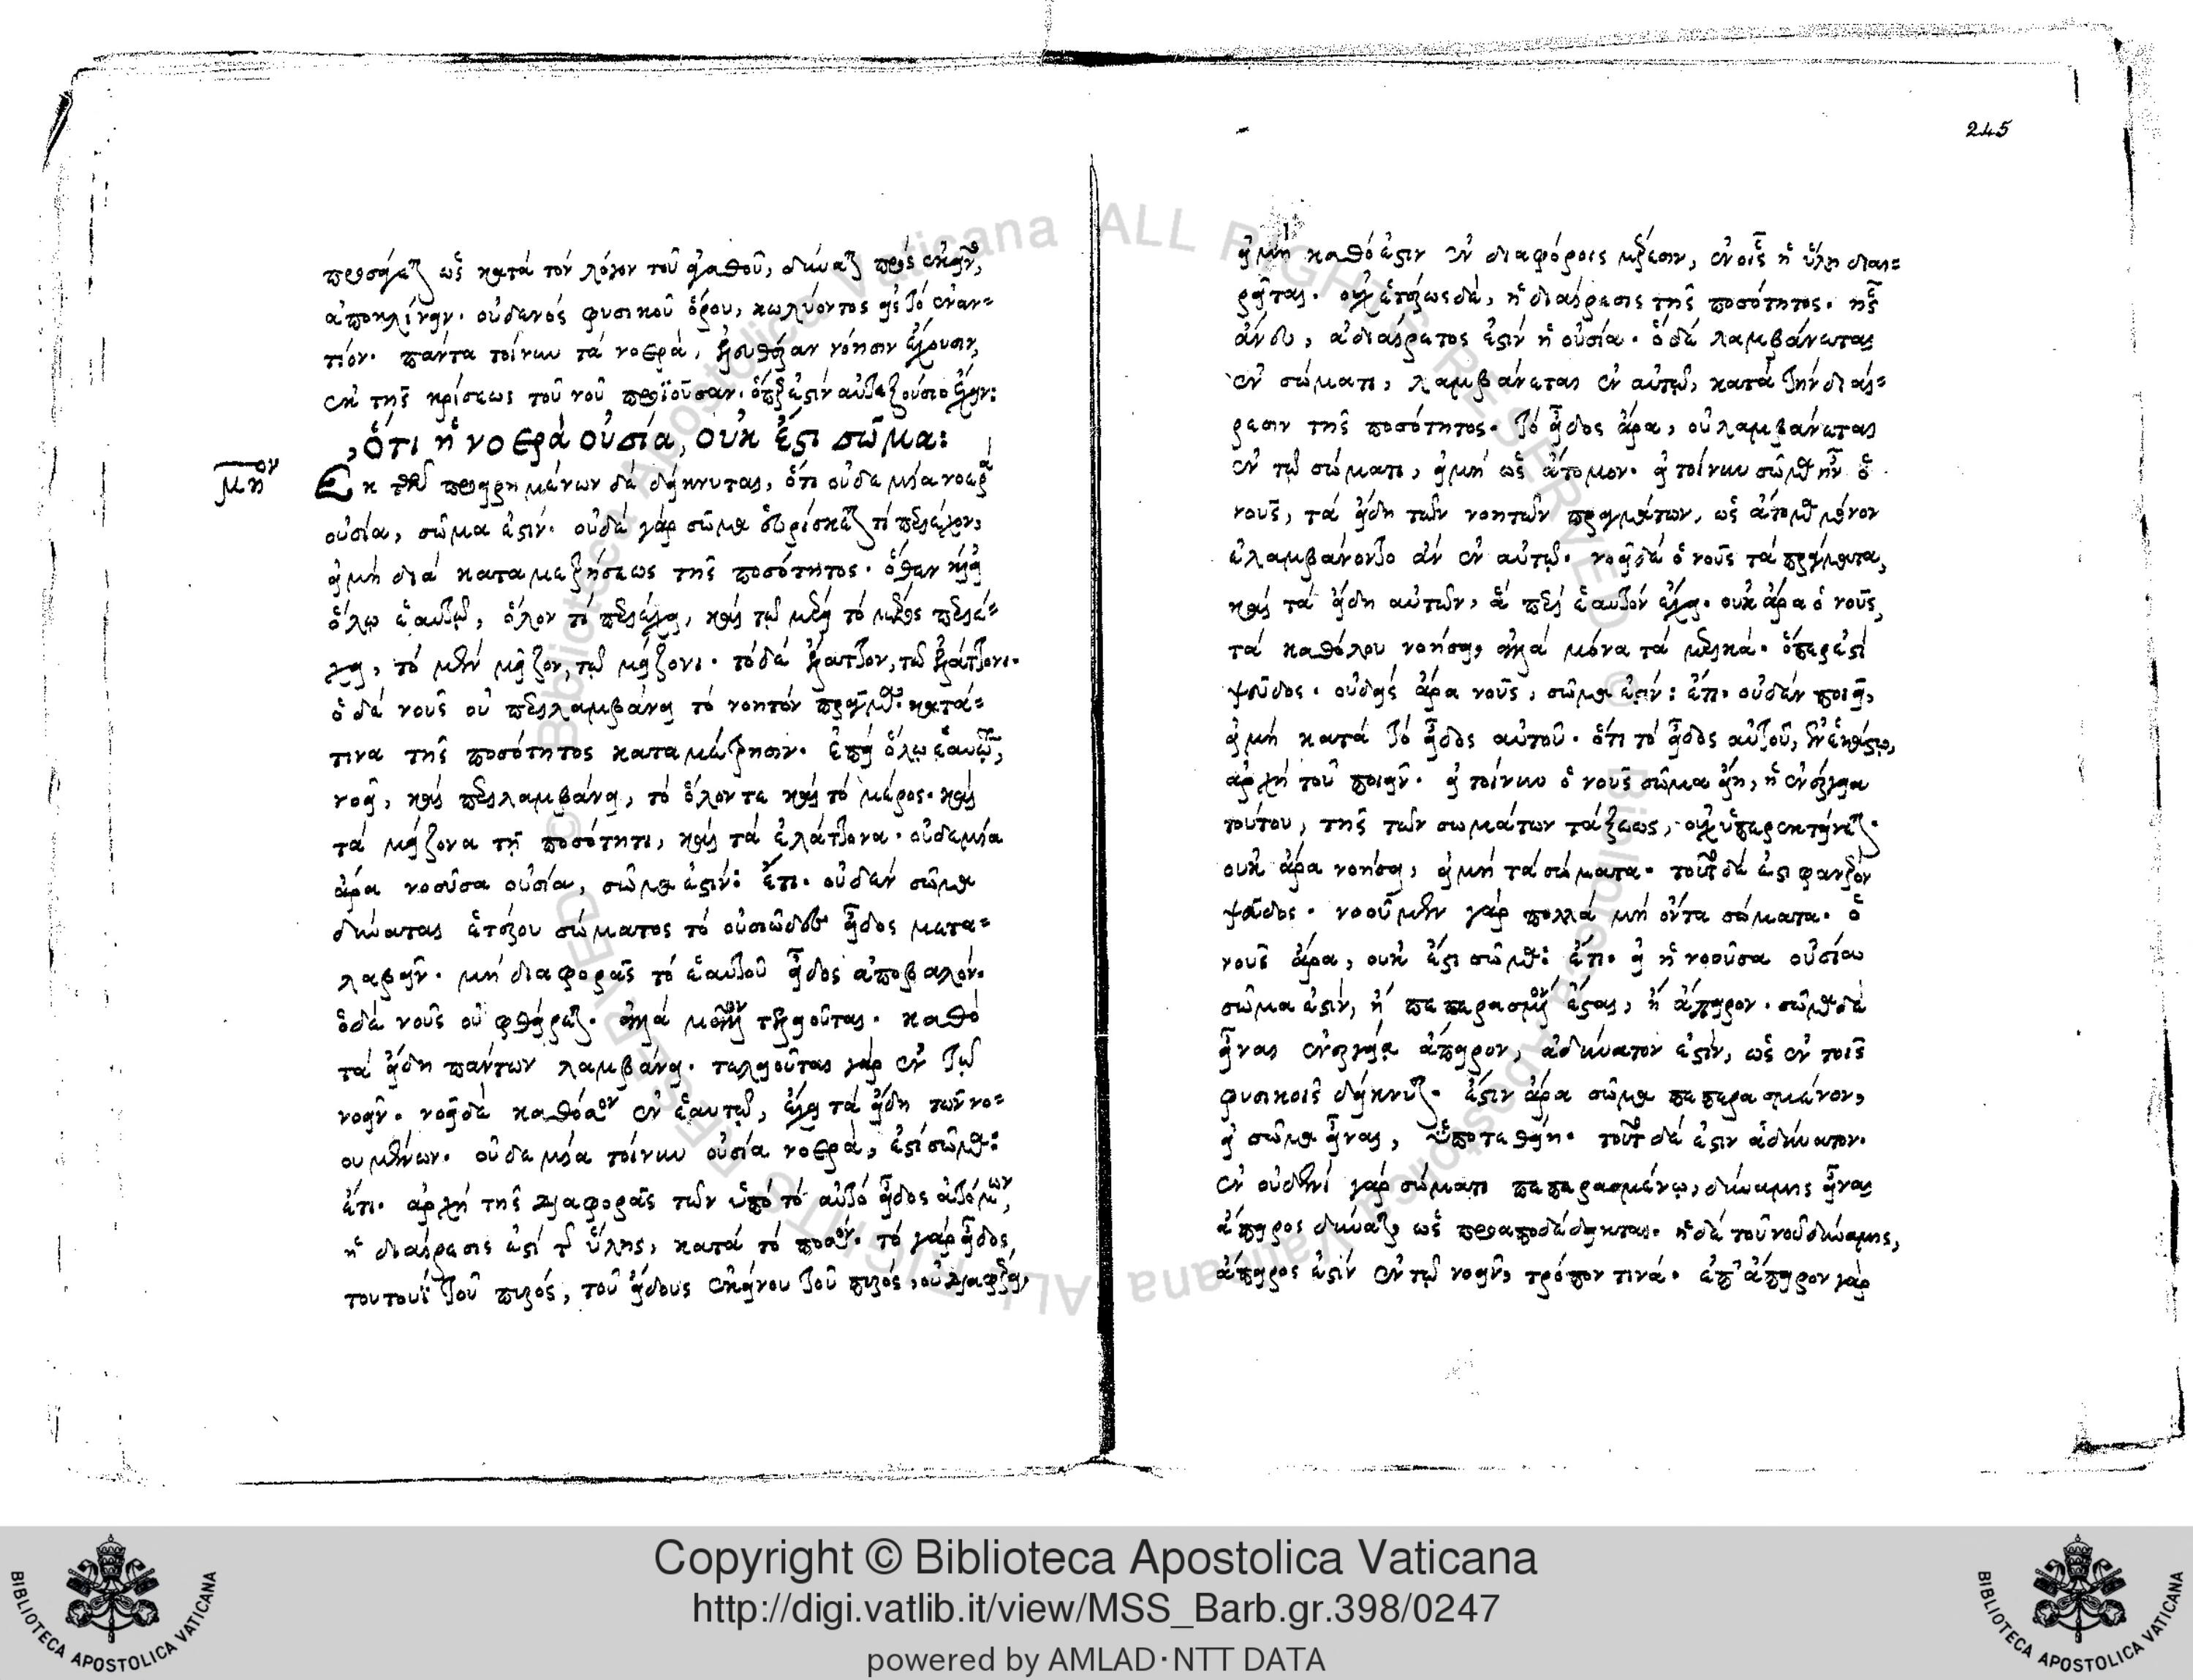 προσάγεται ὡς κατὰ τὸν λόγον τοῦ ἀγαθοῦ, δύναται πρὸς ἐκεῖνο
ἀποκλίνειν. οὐδενὸς φυσικοῦ ὅρου, κωλύοντος εἰς τὸ ἐναν=
τίον. πάντα τοίνυν τὰ νοερὰ, ἐλευθέραν νόησιν ἔχουσιν,
ἐκ τῆς κρίσεως τοῦ νοῦ προϊοῦσαν. ὅπερ ἐστὶν αὐτεξούσιον ἔχειν:
Ὅτι ἡ νοερὰ οὐσία, οὐκ ἔστι σῶμα:
μηον
Ἐκ τῶν προειρημένων δὲ δείκνυται, ὅτι οὐδεμία νοερὰ
οὐσία, σῶμα ἐστίν. οὐδὲ γὰρ σῶμα εὑρίσκεται τὶ περιέχον,
εἰμὴ διὰ καταμετρήσεως τῆς ποσότητος. ὅθεν καὶ εἰ
ὅλῳ ἑαυτῷ, ὅλον τὶ περιέχει, καὶ τῷ μέρει τὸ μέρος περιέ=
χει, τὸ μὲν μεῖζον, τῷ μείζονι. τὸ δὲ ἔλαττον, τῷ ἐλάττονι.
ὁ δὲ νοῦς οὐ περιλαμβάνει τὸ νοητὸν πρᾶγμα κατά=
τινα τῆς ποσότητος καταμέτρησιν. ἐπεὶ ὅλῳ ἑαυτῷ,
νοεῖ, καὶ περιλαμβάνει, τὸ ὅλον τε καὶ τὸ μέρος. καὶ
τὰ μείζονα τῇ ποσότητι, καὶ τὰ ἐλάττονα. οὐδεμία
ἄρα νοοῦσα οὐσία, σῶμα ἐστίν: ἔτι. οὐδὲν σῶμα
δύναται ἑτέρου σώματος τὸ οὐσιῶδες εἶδος μετα=
λαβεῖν. μὴ διαφορᾶς τὸ ἑαυτοῦ εἶδος ἀποβαλόν.
ὁ δὲ νοῦς οὐ φθείρεται. ἀλλὰ μᾶλλον τελειοῦται. καθὸ
τὰ εἴδη πάντων λαμβάνει. τελειοῦται γὰρ ἐν τῷ
νοεῖν. νοεῖ δὲ καθόσον ἐν ἑαυτῷ, ἔχει τὰ εἴδη τῶν νο=
ουμένων. οὐδεμία τοίνυν οὐσία νοερὰ, ἐστὶ σῶμα:
ἔτι. ἀρχὴ τῆς διαφορᾶς τῶν ὑπὸ τὸ αὐτὸ εἶδος ἀτόμων,
ἡ διαίρεσις ἐστὶ τῆς ὕλης, κατὰ τὸ ποσόν. τὸ γὰρ εἶδος
τουτουῒ τοῦ πυρός, τοῦ εἴδους ἐκείνου τοῦ πυρός, οὐ διαφέρει,
245
εἰμὴ καθό ἐστιν ἐν διαφόροις μέρεσιν, ἐν οἷς ἡ ὕλη διαι=
ρεῖται. οὐχ ἑτέρως δὲ, ἢ διαίρεσις τῆς ποσότητος. ἧς
ἄνευ, ἀδιαίρετος ἐστὶν ἡ οὐσία. ὃ δὲ λαμβάνεται
ἐν σώματι, λαμβάνεται ἐν αὐτῷ, κατὰ τὴν διαί=
ρεσιν τῆς ποσότητος. τὸ εἶδος ἄρα, οὐ λαμβάνεται
ἐν τῷ σώματι, εἰμὴ ὡς ἄτομον. εἰ τοίνυν σῶμα ἦν ὁ
νοῦς, τὰ εἴδη τῶν νοητῶν πραγμάτων, ὡς ἄτομα μόνον
ἐλαμβάνοντο ἂν ἐν αὐτῷ. νοεῖ δὲ ὁ νοῦς τὰ πράγματα,
κατὰ τὰ εἴδη αὐτῶν, ἃ περὶ ἑαυτὸν ἔχει. οὐκ ἄρα ὁ νοῦς,
τὰ καθόλου νοήσει, ἀλλὰ μόνα τὰ μερικά. ὅπερ ἐστὶ
ψεῦδος. οὐδεὶς ἄρα νοῦς, σῶμα ἐστίν: ἔτι. οὐδὲν ποιεῖ,
εἰμὴ κατὰ τὸ εἶδος αὐτοῦ. ὅτι τὸ εἶδος αὐτοῦ, ἐν ἑκάστῳ,
ἀρχὴ τοῦ ποιεῖν. εἰ τοίνυν ὁ νοῦς σῶμα εἴη, ἡ ἐνέργεια
τούτου, τῆς τῶν σωμάτων τάξεως, οὐχ ὑπερεκτείνεται.
οὐκ ἄρα νοήσει, εἰμὴ τὰ σώματα. τοῦτο δὲ ἐστὶ φανερὸν
ψεῦδος. νοοῦμεν γὰρ πολλὰ μὴ ὄντα σώματα. ὁ
νοῦς ἄρα, οὐκ ἔστι σῶμα: ἔτι. εἰ ἡ νοοῦσα οὐσία
σῶμα ἐστὶν, ἢ πεπερασμένον ἔσται, ἢ ἄπειρον. σῶμα δὲ
εἶναι ἐνεργείᾳ ἄπειρον, ἀδύνατον ἐστὶν, ὡς ἐν τοῖς
φυσικοῖς δείκνυται. ἔστιν ἄρα σῶμα πεπερασμένον,
εἰ σῶμα εἶναι, ὑποτεθείη. τοῦτο δὲ ἐστὶν ἀδύνατον.
ἐν οὐδενὶ γὰρ σώματι πεπερασμένῳ, δύναμις εἶναι
ἄπειρος δύναται, ὡς προαποδέδεικται. ἡ δὲ τοῦ νοῦ δύναμις,
ἄπειρος ἐστὶν ἐν τῷ νοεῖν, τρόπον τινά. ἐπ' ἄπειρον γὰρ
Copyright © Biblioteca Apostolica Vaticana
http://digi.vatlib.it/view/MSS_Barb.gr.398/0247
powered by AMLAD·NTT DATA